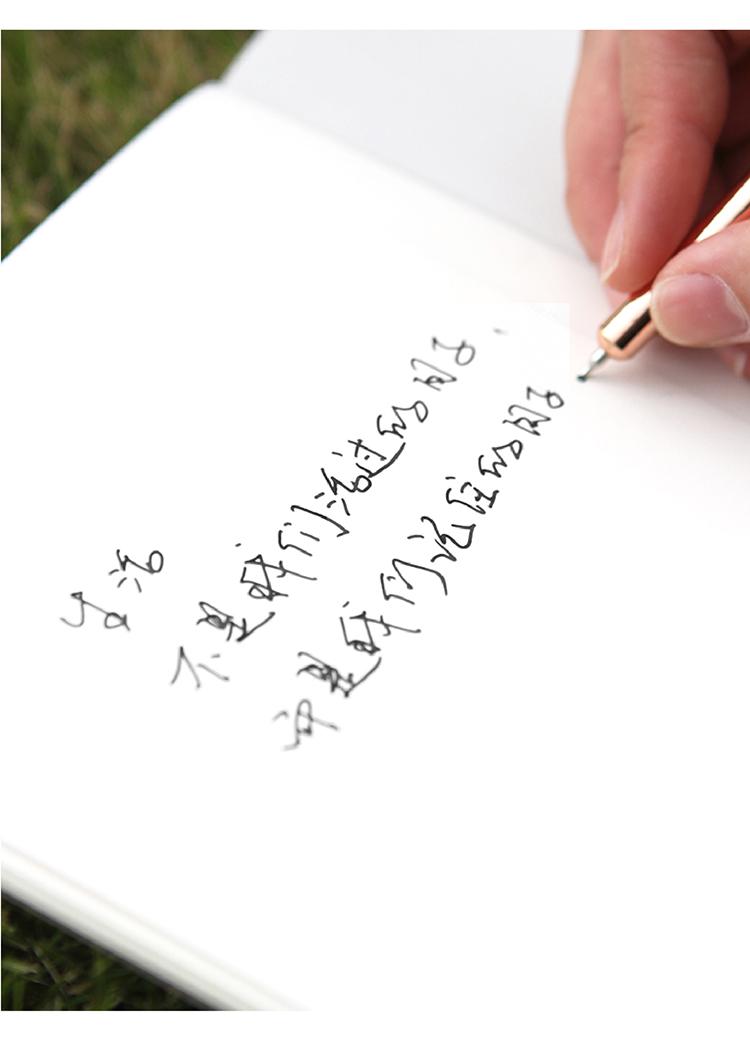 生活
不是我们活过的日子，
而是我们记住的日子